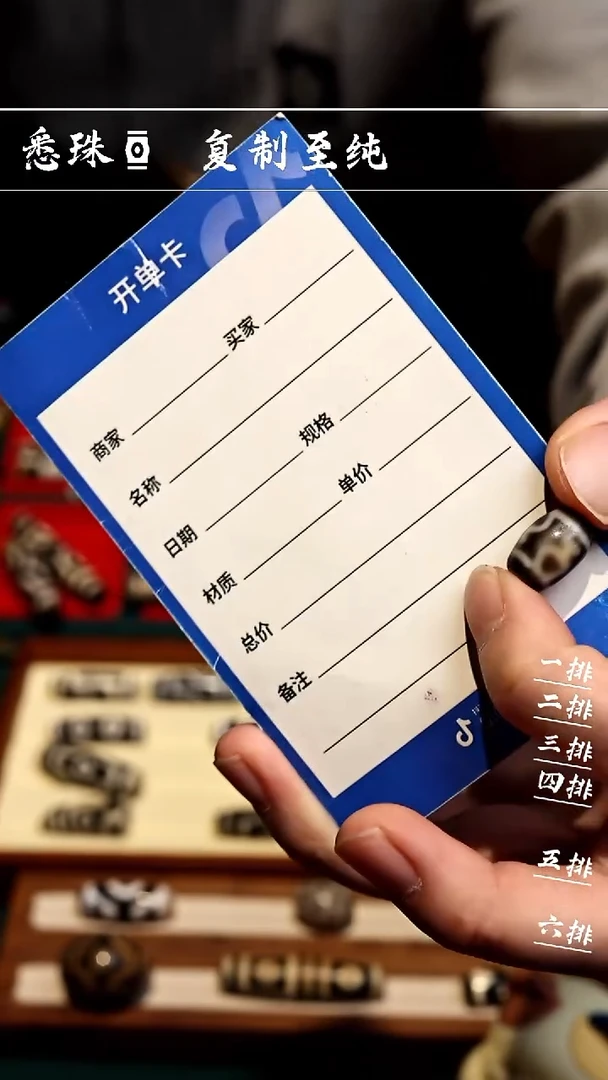 悉珠 复制至纯
开单卡
商家 买家
名称
日期 规格
材质 单价
总价
备注
一排
二排
三排
四排
五排
六排